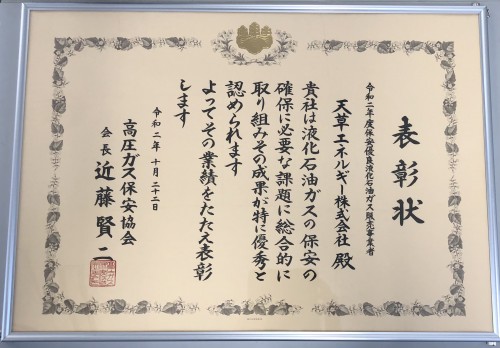 表彰状
令和二年度保安優良液化石油ガス販売事業者
天草エネルギー株式会社 殿
貴社は液化石油ガスの保安の
確保に必要な課題に総合的に
取り組みその成果が特に優秀と
認められます
よってその業績をたたえ表彰
します
令和二年十月二十二日
高圧ガス保安協会
会長 近藤賢二